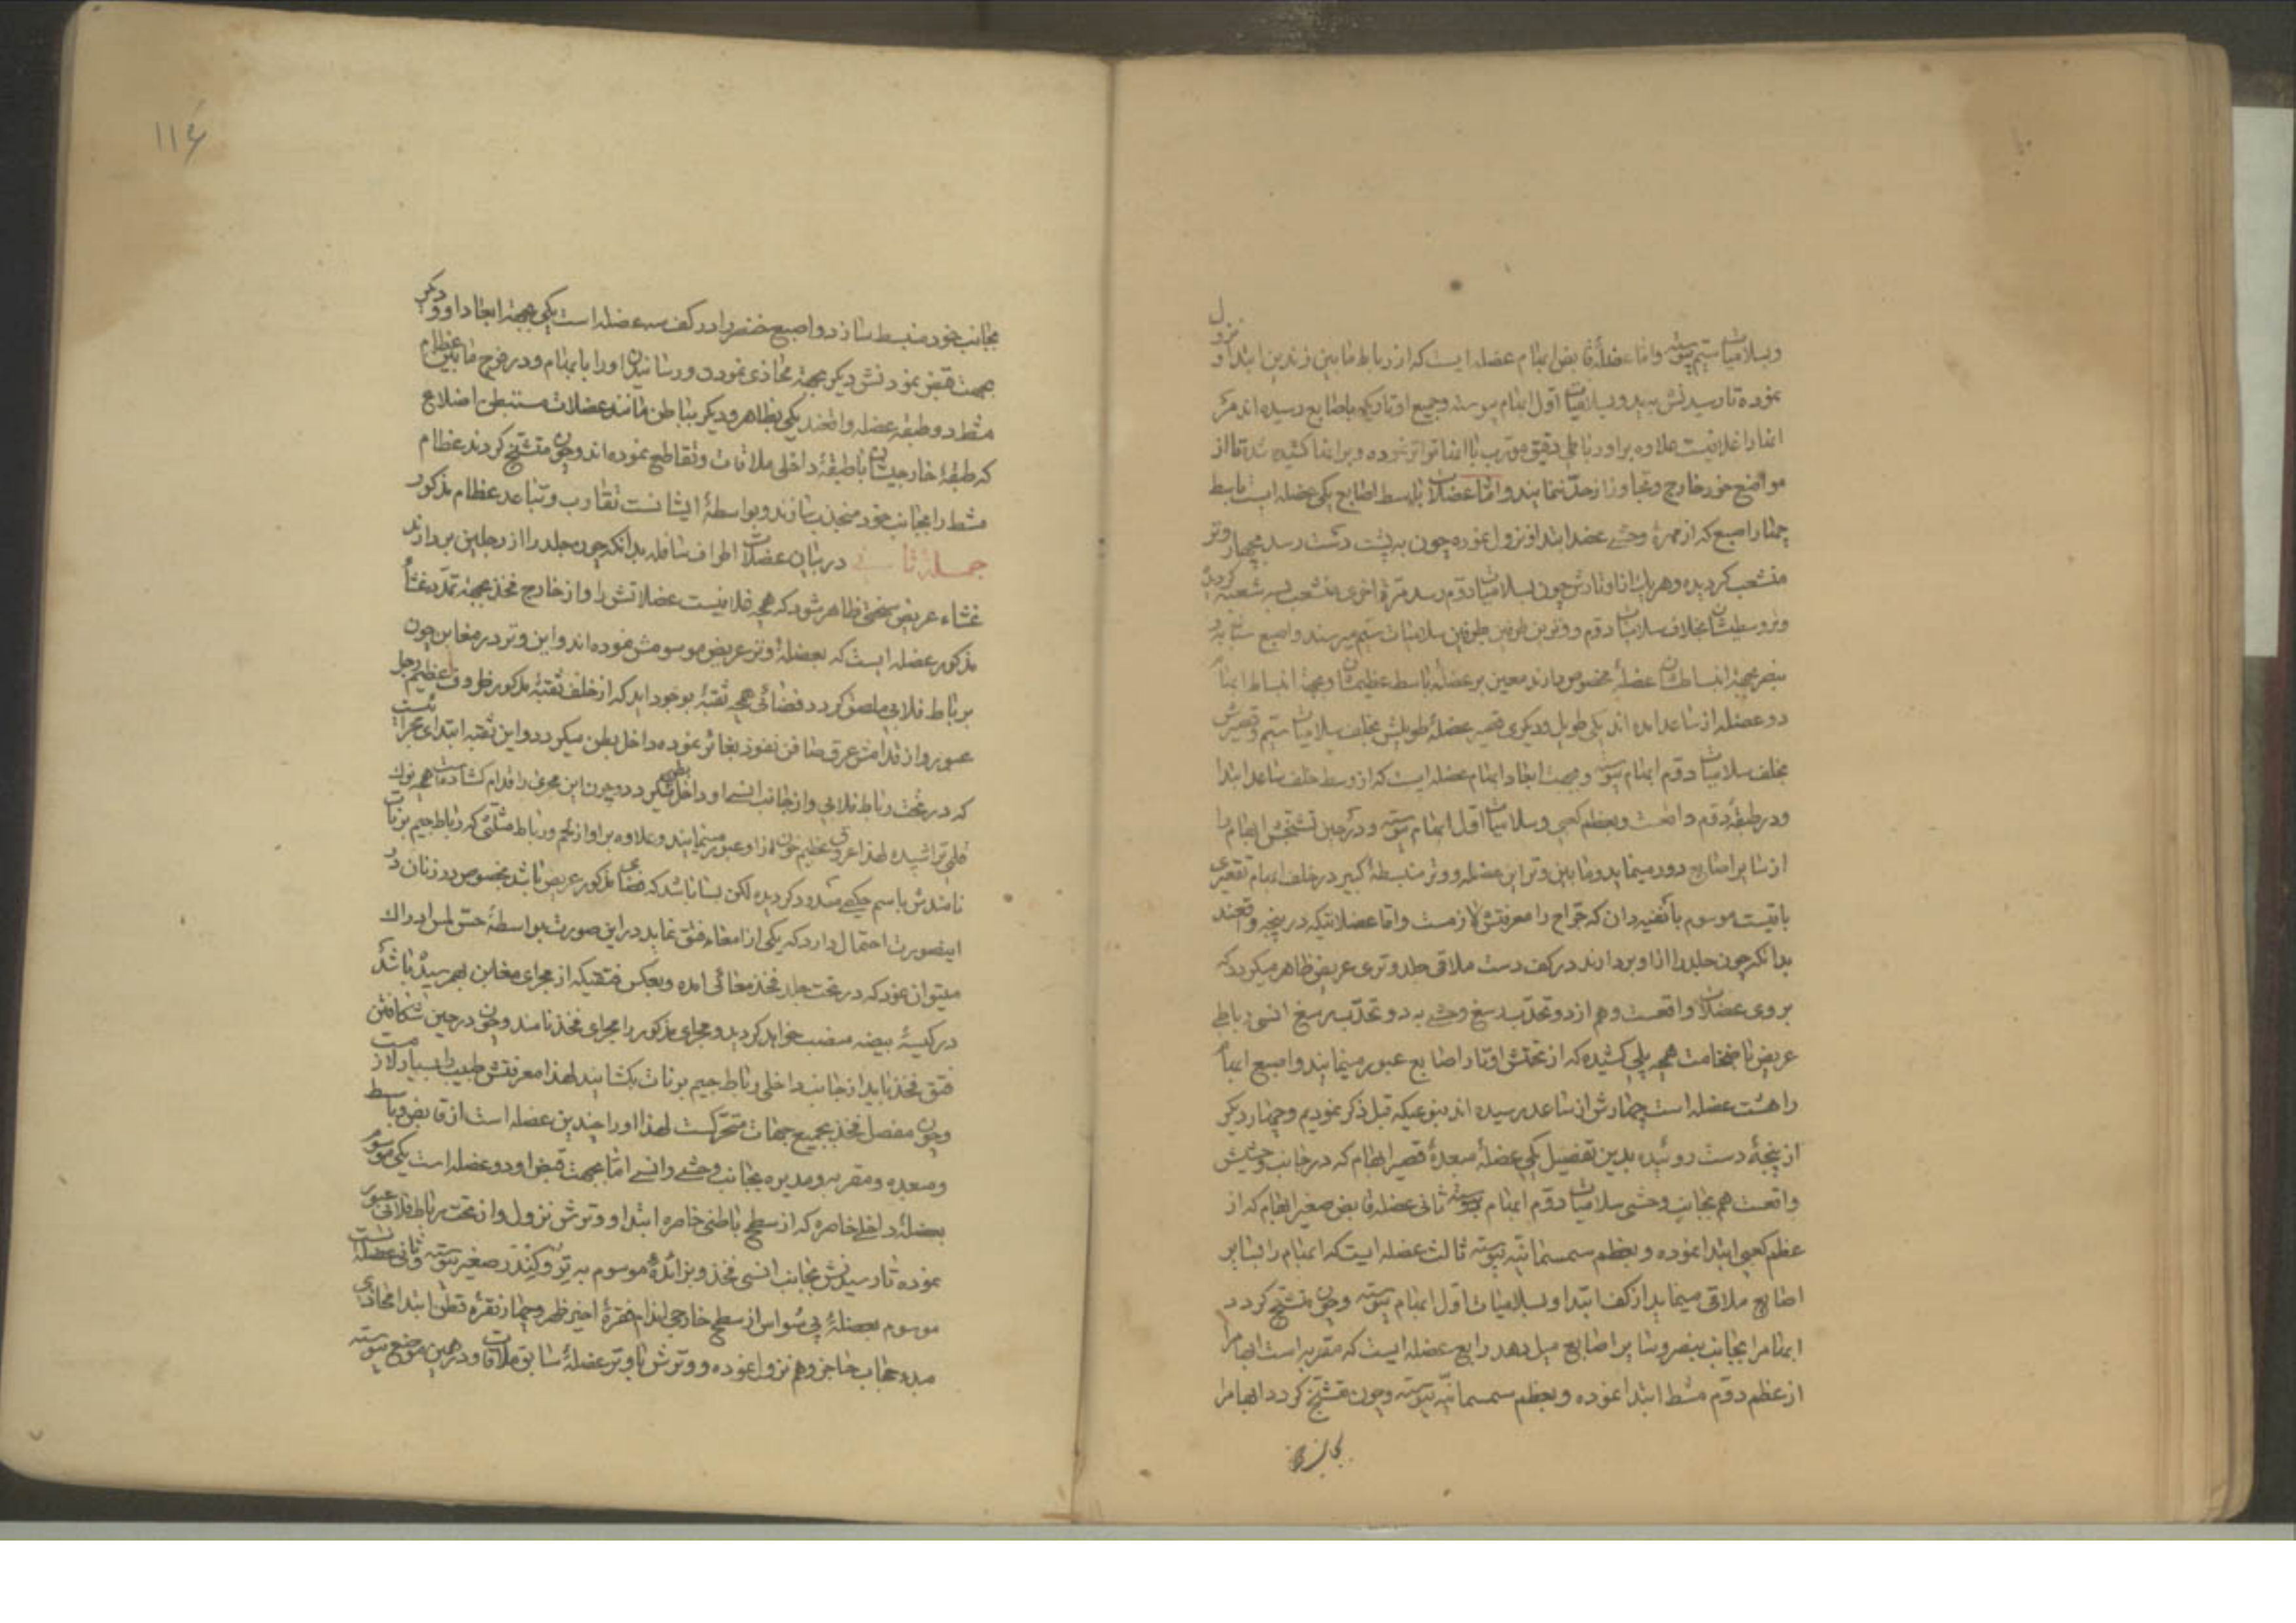 وبسلامیات سیم پیوسته واما عضلهٔ قابض ابهام عضله ایست که از رباط مابین زندین ابتدا و نزول
نموده تا رسیدنش به ید وبسلامیات اول ابهام پیوسته وجمیع اوتاریکه باصابع رسیده اند مر
انها را غلافیست علاوه براو رباطی دقیق مورب با انها نموده وبر انها کشیده شده تا از
مواضع خود خارج وتجاوز از حد ننمایند واما عضلات باسط اصابع یکی عضله ایست باسط
چهار اصبع که از مهرهٔ وحشی عضد ابتدا ونزول نموده چون به پشت دست رسد بچهار وتر
منشعب کردیده وهریک از اوتارش چون بسلامیات دوم رسد مرة اخری منشعب بسه شعبه کردیده
وتر وسطیشان بخلف سلامیات دوم ووترین طرفین بطرفین سلامیات سیم میرسند واصبع سبابه و
بنصر بجهة انبساطشان عضلهٔ مخصوص دارند معین بر عضلهٔ باسط عظیمشان وبجهة انبساط ابهام
دو عضله از ساعد امده اند یکی طویل ودیکری قصیر عضلهٔ طویلش بخلف سلامیات سیم وقصیرش
بخلف سلامیات دوم ابهام پیوسته وبجهت ابعاد ابهام عضله ایست که از وسط خلف ساعد ابتدا
ودر طبقهٔ دوم واقعست وبعظم کعبی وسلامیات اول ابهام پیوسته ودر حین تشنجش ابهام را
از سایر اصابع دور مینماید ومابین وتر این عضله ووتر منبسطهٔ کبیر در خلف ابهام تقعیری
باقیست موسوم بانفیه دان که جراح را معرفتش لازمست واما عضلاتیکه در پنجه واقعند
بدانکه چون جلد را از او بردارند در کف دست ملاقی جلد وتری عریض ظاهر میکردد که
بروی عضلات واقعست وهم از دو تحدب رسغ وحشی به دو تحدب رسغ انسی رباطی
عریض با ضخامت همچه پلی کشیده که از تحتش اوتار اصابع عبور مینمایند واصبع ابهام
را هشت عضله است چهارش از ساعد رسیده اند بنوعیکه قبل ذکر نمودیم وچهار دیکر
از پنجهٔ دست روئیده بدین تفصیل یکی عضلهٔ مبعدهٔ قصیر ابهام که در جانب وحشیش
واقعست هم بجانب وحشی سلامیات دوم ابهام پیوسته ثانی عضله قابض صغیر ابهام که از
عظم کعبی ابتدا نموده وبعظم سمسمانیه پیوسته ثالث عضله ایست که ابهام را بسایر
اصابع ملاقی مینماید از کف ابتدا وبسلامیات اول ابهام پیوسته وچون متشنج کردد
ابهام را بجانب بنصر وسایر اصابع میل دهد رابع عضله ایست که مقربه است ابهام را
از عظم دوم مشط ابتدا نموده وبعظم سمسمانیه پیوسته وچون متشنج کردد ابهام را
بجانب خود
۱۱۶
بجانب خود منبسط سازد واصبع خنصر را در کف سه عضله است یکی بجهة ابعاد او ودیکر
بجهت قبض نمودنش دیکر بجهة محاذی نمودن ورسانیدن او را با ابهام ودر فرج مابین عظام
مشط دو طبقه عضله واقعند یکی بظاهر ودیکر بباطن مانند عضلات مستبطن اضلاع
که طبقهٔ خارجیشان با طبقهٔ داخلی ملاقات وتقاطع نموده اند وچون متشنج کردند عظام
مشط را بجانب خود منجذب سازند وبواسطهٔ ایشانست تقارب وتباعد عظام مذکور
جملهٔ ثانی در بیان عضلات اطراف سافله بدانکه چون جلد را از رجلین بردارند
غشاء عریض ضخمی ظاهر شود که همچه غلافیست عضلاتش را واز خارج فخذ بجهة تمدد غشاء
مذکور عضله ایست که بعضلهٔ وتر عریض موسومش نموده اند واین وتر در مغابن چون
بر باط فلابی ملصق کردد فضائی همچه ثقبهٔ بوجود اید که از خلف ثقبهٔ مذکور ظروف عظیم رجل
عبور واز قدامش عرق صافن نفوذ بغائر نموده داخل بطن میکردد واین ثقبه ابتدای مجرائیست
که در تحت رباط فلابی واز جانب انسی او داخل بطن میکردد وچون این مجری را قدام کشاده است همچه نوک
قلمی تراشیده لهذا عروق عظیم خون از او عبور مینمایند وعلاوه براو از لحم ورباط مثلثی که رباط جیم برنات
نامندش باسم حکیم مسدود کردیده لکن بسا باشد که فضای مذکور عریض باشد بخصوص در زنان در
اینصورت احتمال دارد که یکی از امعاء فتق نماید در این صورت بواسطهٔ حس لمس ادراک
میتوان نمود که در تحت جلد فخذ معائی امده وبعکس فتقیکه از مجرای مغابن بهم رسیده باشد
در کیسهٔ بیضه منصب خواهد کردید ومجرای مذکور را مجرای فخذ نامند وچون در حین شکافتن
فتق فخذ باید از جانب داخلی رباط جیم برنات بکشایند لهذا معرفتش طبیب را بسیار لازمست
وچون مفصل فخذ بجمیع جهات متحرکست لهذا او را چندین عضله است از قابض وباسط
ومبعده ومقربه ومدیره بجانب وحشی وانسی اما بجهت قبض او دو عضله است یکی موسوم
بعضلهٔ داخلی خاصره که از سطح باطنی خاصره ابتدا ووترش نزول واز تحت رباط فلابی عبور
نموده تا رسیدنش بجانب انسی فخذ وبزائدهٔ موسوم به تروکندر صغیر پیوسته وثانی عضله ایست
موسوم بعضلهٔ پی سواس از سطح خارجی اندام فقرهٔ اخیر ظهر وچهار فقرهٔ قطن ابتدا محاذی
مبدء حجاب حاجز وهم نزول نموده ووترش با وتر عضلهٔ سابق ملاقات ودر همین موضع پیوسته